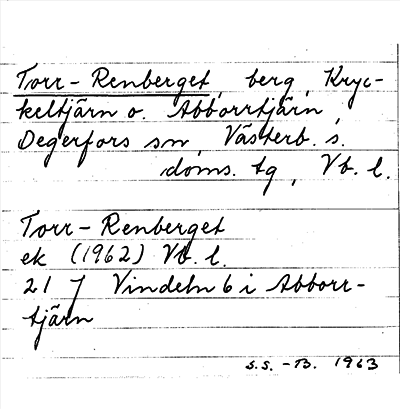 Torr-Renberget, berg, Kryc-
keltjärn o. Abborrtjärn,
Degerfors sn, Västerb. s.
doms. tg, Vb. l.
Torr-Renberget
ek (1962) Vb. l.
21 J Vindeln 6 i Abborr-
tjärn
S.S. -B. 1963